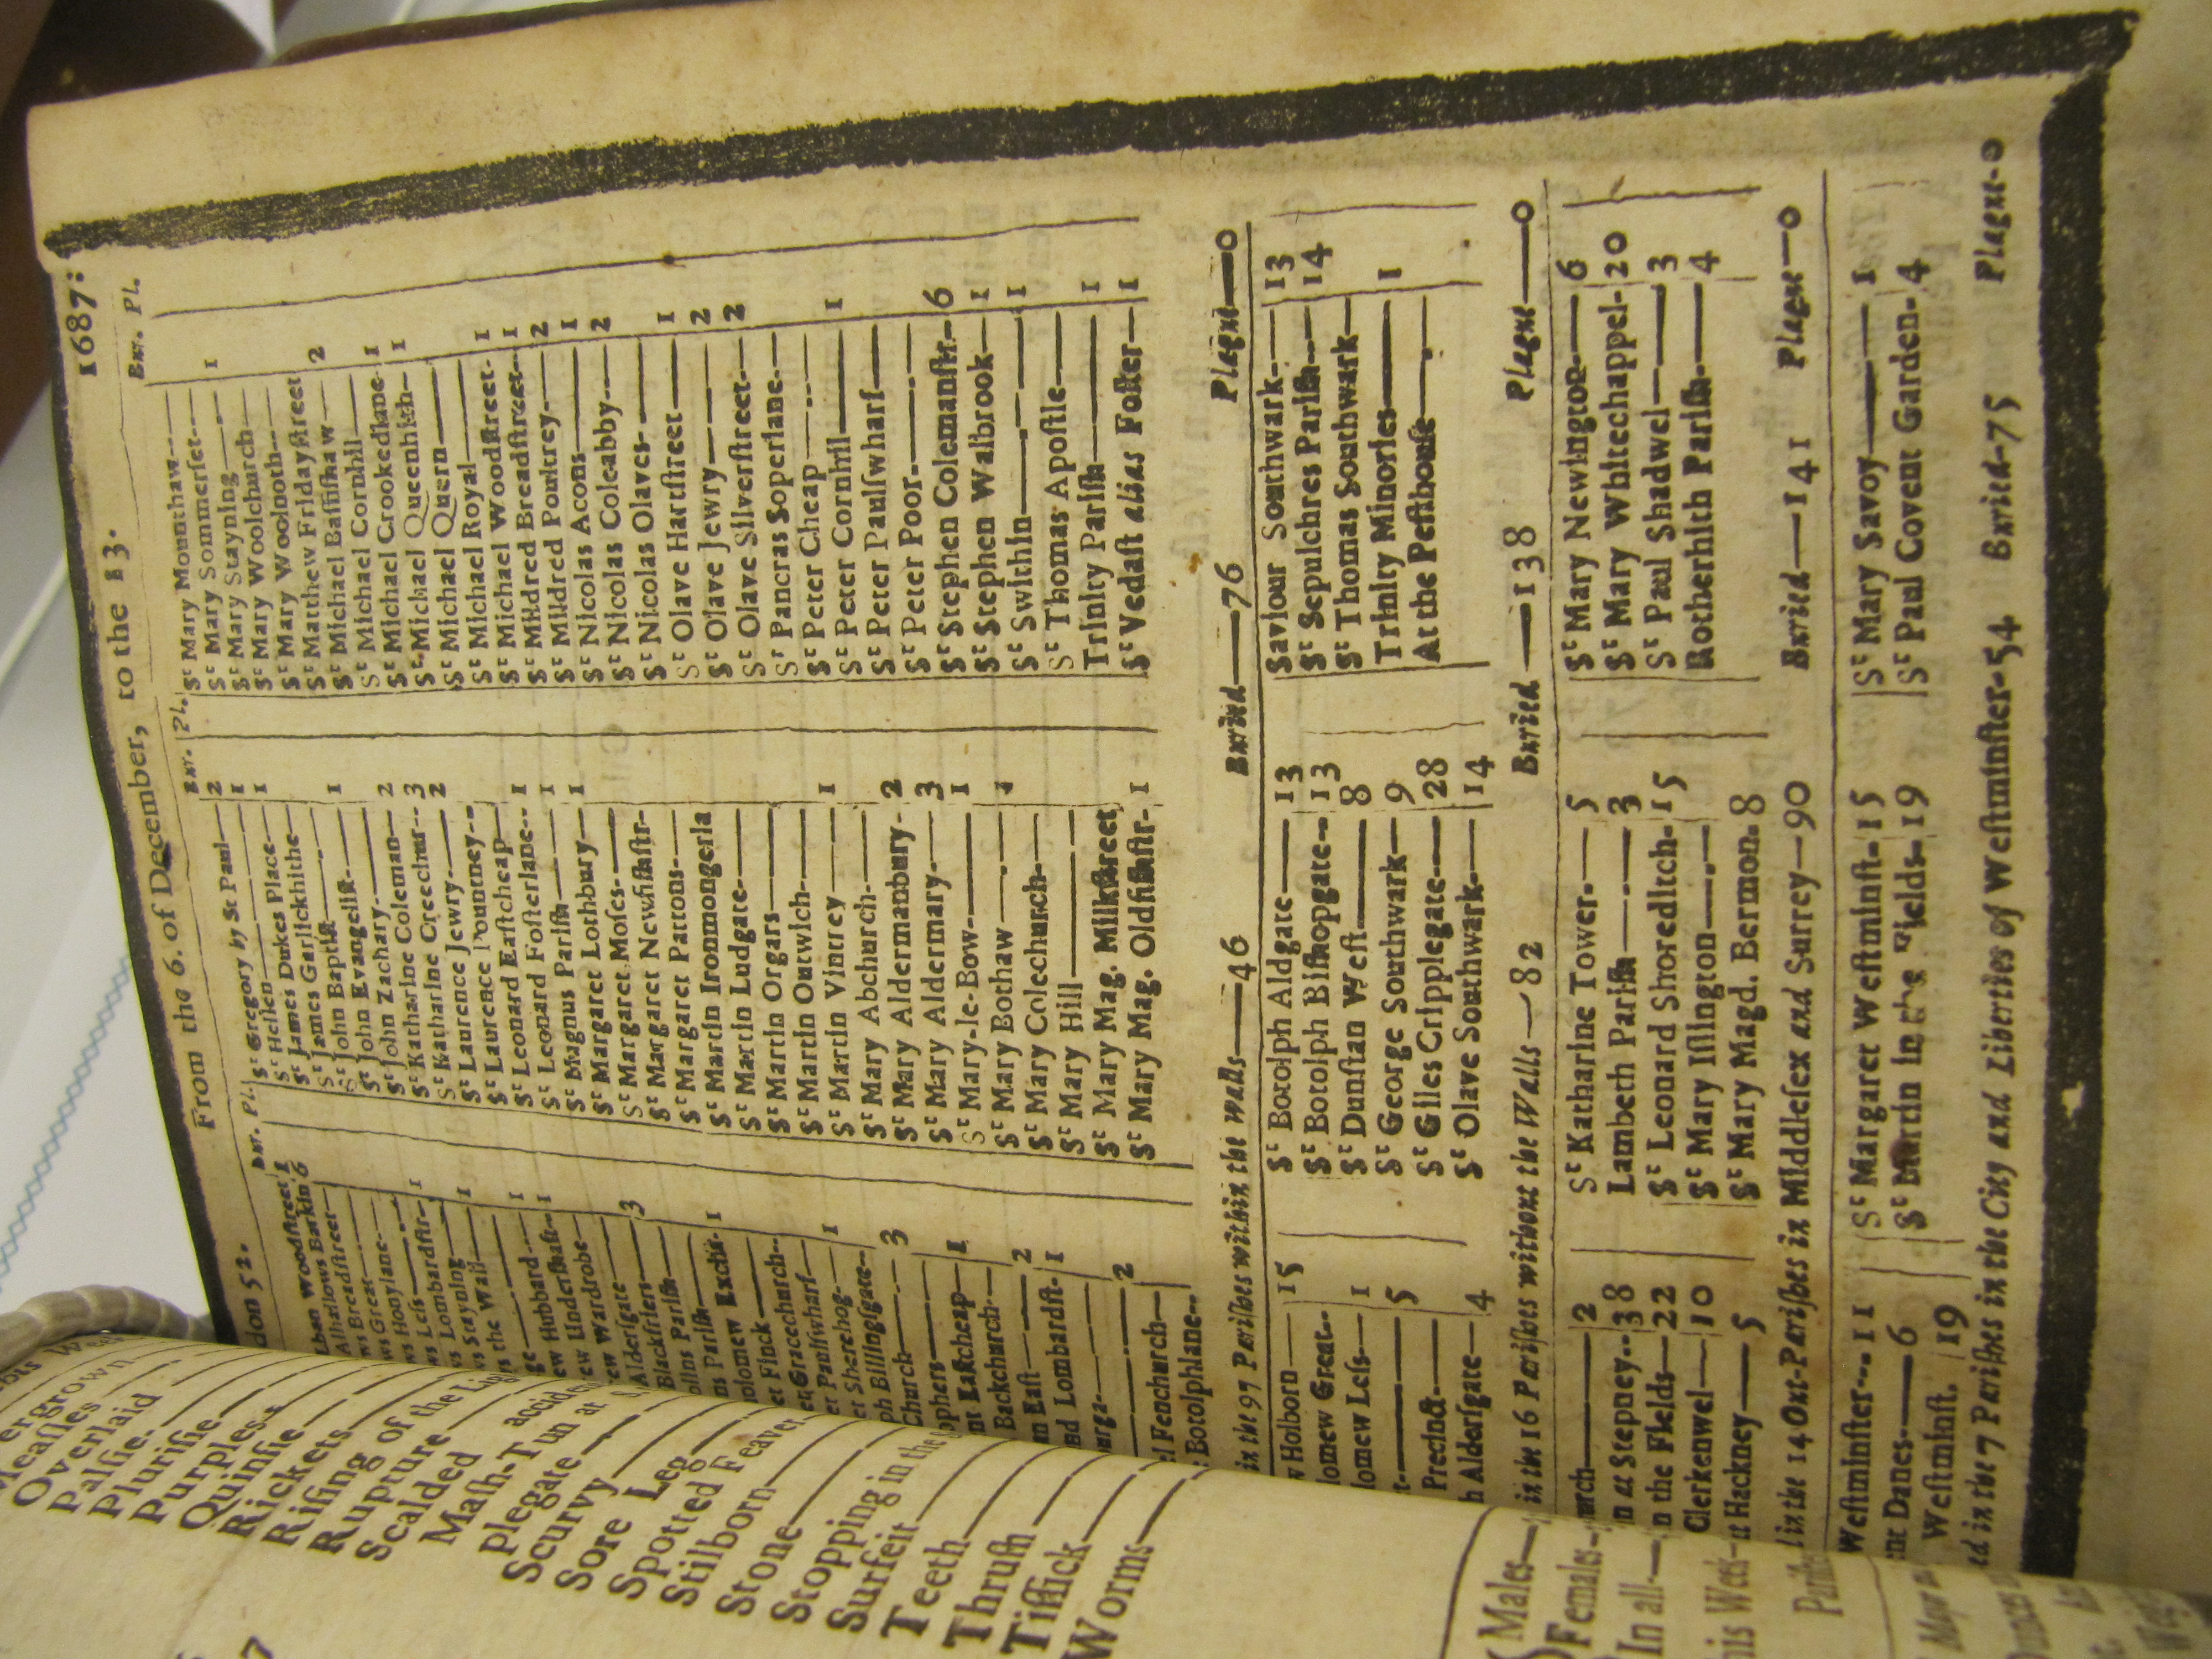 don 52.
From the 6. of December, to the 13.
1687:
Bur. Pl.
lban Woodstreet 1
Alhallows Barkin 6
ws Breadstreet—
ws Great—
ws Honylane—
ws Less— 1
ws Lombardstr-
ws Stayning— 1
ws the Wall—
ge— 1
ew Hubbard— 1
ew Undershaft--
ew Wardrobe—
Aldersgate— 3
Blackfriers—
ollins Parish—
ns Parish—
olomew Excha- 1
et Finck—
et Gracechurch--
et Paulswharf— 1
et Sherehog—
ph Billingsgate--
Church— 3
ophers—
nt Eastcheap— 1
Backchurch-
n East— 2
nd Lombardst- 1
urga—
— 2
l Fenchurch—
e Botolphlane--
Bur. Pl.
St Gregory by St Paul— 2
St Hellen— 1
St James Dukes Place— 1
St James Garlickhithe—
St John Baptist—
St John Evangelist— 1
St John Zachary—
St Katharine Coleman— 2
St Katharine Creechur-- 3
St Laurence Jewry— 2
St Laurence Pountney--
St Leonard Eastcheap—
St Leonard Fosterlane-- 1
St Magnus Parish— 1
St Margaret Lothbury— 1
St Margaret Moses—
St Margaret Newfishstr-
St Margaret Pattons—
St Martin Ironmongerla
St Martin Ludgate—
St Martin Orgars—
St Martin Outwich—
St Martin Vintrey— 1
St Mary Abchurch—
St Mary Aldermanbury- 2
St Mary Aldermary— 3
St Mary-le-Bow— 1
St Mary Bothaw—
St Mary Colechurch—
St Mary Hill—
St Mary Mag. Milkstreet
St Mary Mag. Oldfishstr- 1
Bur. Pl.
St Mary Mounthaw—
St Mary Sommerset— 1
St Mary Stayning—
St Mary Woolchurch—
St Mary Woolnoth—
St Matthew Fridaystreet
St Michael Bassishaw— 2
St Michael Cornhil—
St Michael Crookedlane- 1
St Michael Queenhith— 1
St Michael Quern—
St Michael Royal—
St Michael Woodstreet- 1
St Mildred Breadstreet— 1
St Mildred Poultrey— 2
St Nicolas Acons— 1
St Nicolas Coleabby— 2
St Nicolas Olaves-
St Olave Hartstreet— 1
St Olave Jewry— 2
St Olave Silverstreet— 2
St Pancras Soperlane—
St Peter Cheap—
St Peter Cornhil— 1
St Peter Paulswharf—
St Peter Poor—
St Stephen Colemanstr- 6
St Stephen Walbrook— 1
St Swithin— 1
St Thomas Apostle—
Trinity Parish— 1
St Vedast alias Foster— 1
in the 97 Parishes within the Walls—46 Buried—76 Plague—0
w Holborn— 15
olomew Great--
olomew Less— 1
t— 5
Precinct—
h Aldersgate— 4
St Botolph Aldgate— 13
St Botolph Bishopgate-- 13
St Dunstan West— 8
St George Southwark— 9
St Giles Cripplegate— 28
St Olave Southwark— 14
Saviour Southwark— 13
St Sepulchres Parish— 14
St Thomas Southwark—
Trinity Minories— 1
At the Pesthouse—
in the 16 Parishes without the Walls—82 Buried—138 Plague—0
urch— 2
n at Stepney-- 38
n the Fields— 22
Clerkenwel— 10
at Hackney— 5
St Katharine Tower— 5
Lambeth Parish— 3
St Leonard Shoreditch- 15
St Mary Islington—
St Mary Magd. Bermon. 8
St Mary Newington— 6
St Mary Whitechappel- 20
St Paul Shadwel— 3
Rotherhith Parish— 4
l in the 14 Out-Parishes in Middlesex and Surrey—90 Buried—141 Plague—0
Westminster-- 11
ent Danes— 6
Westminst. 19
St Margaret Westminst- 15
St Martin in the Fields- 19
St Mary Savoy— 1
St Paul Covent Garden- 4
ed in the 7 Parishes in the City and Liberties of Westminster-54 Buried-75 Plague-0
ergrown
Measles
Overlaid
Palsie
Plurisie
Purples
Quinsie
Rickets
Rising of the Lig
Rupture
Scalded accide
Mash-Tun at S
plegate
Scurvy
Sore Leg
Spotted Feaver
Stilborn
Stone
Stopping in the
Surfeit
Teeth
Thrush
Tissick
Worms
Males—
Females-
In all—
his Week-
Parishes